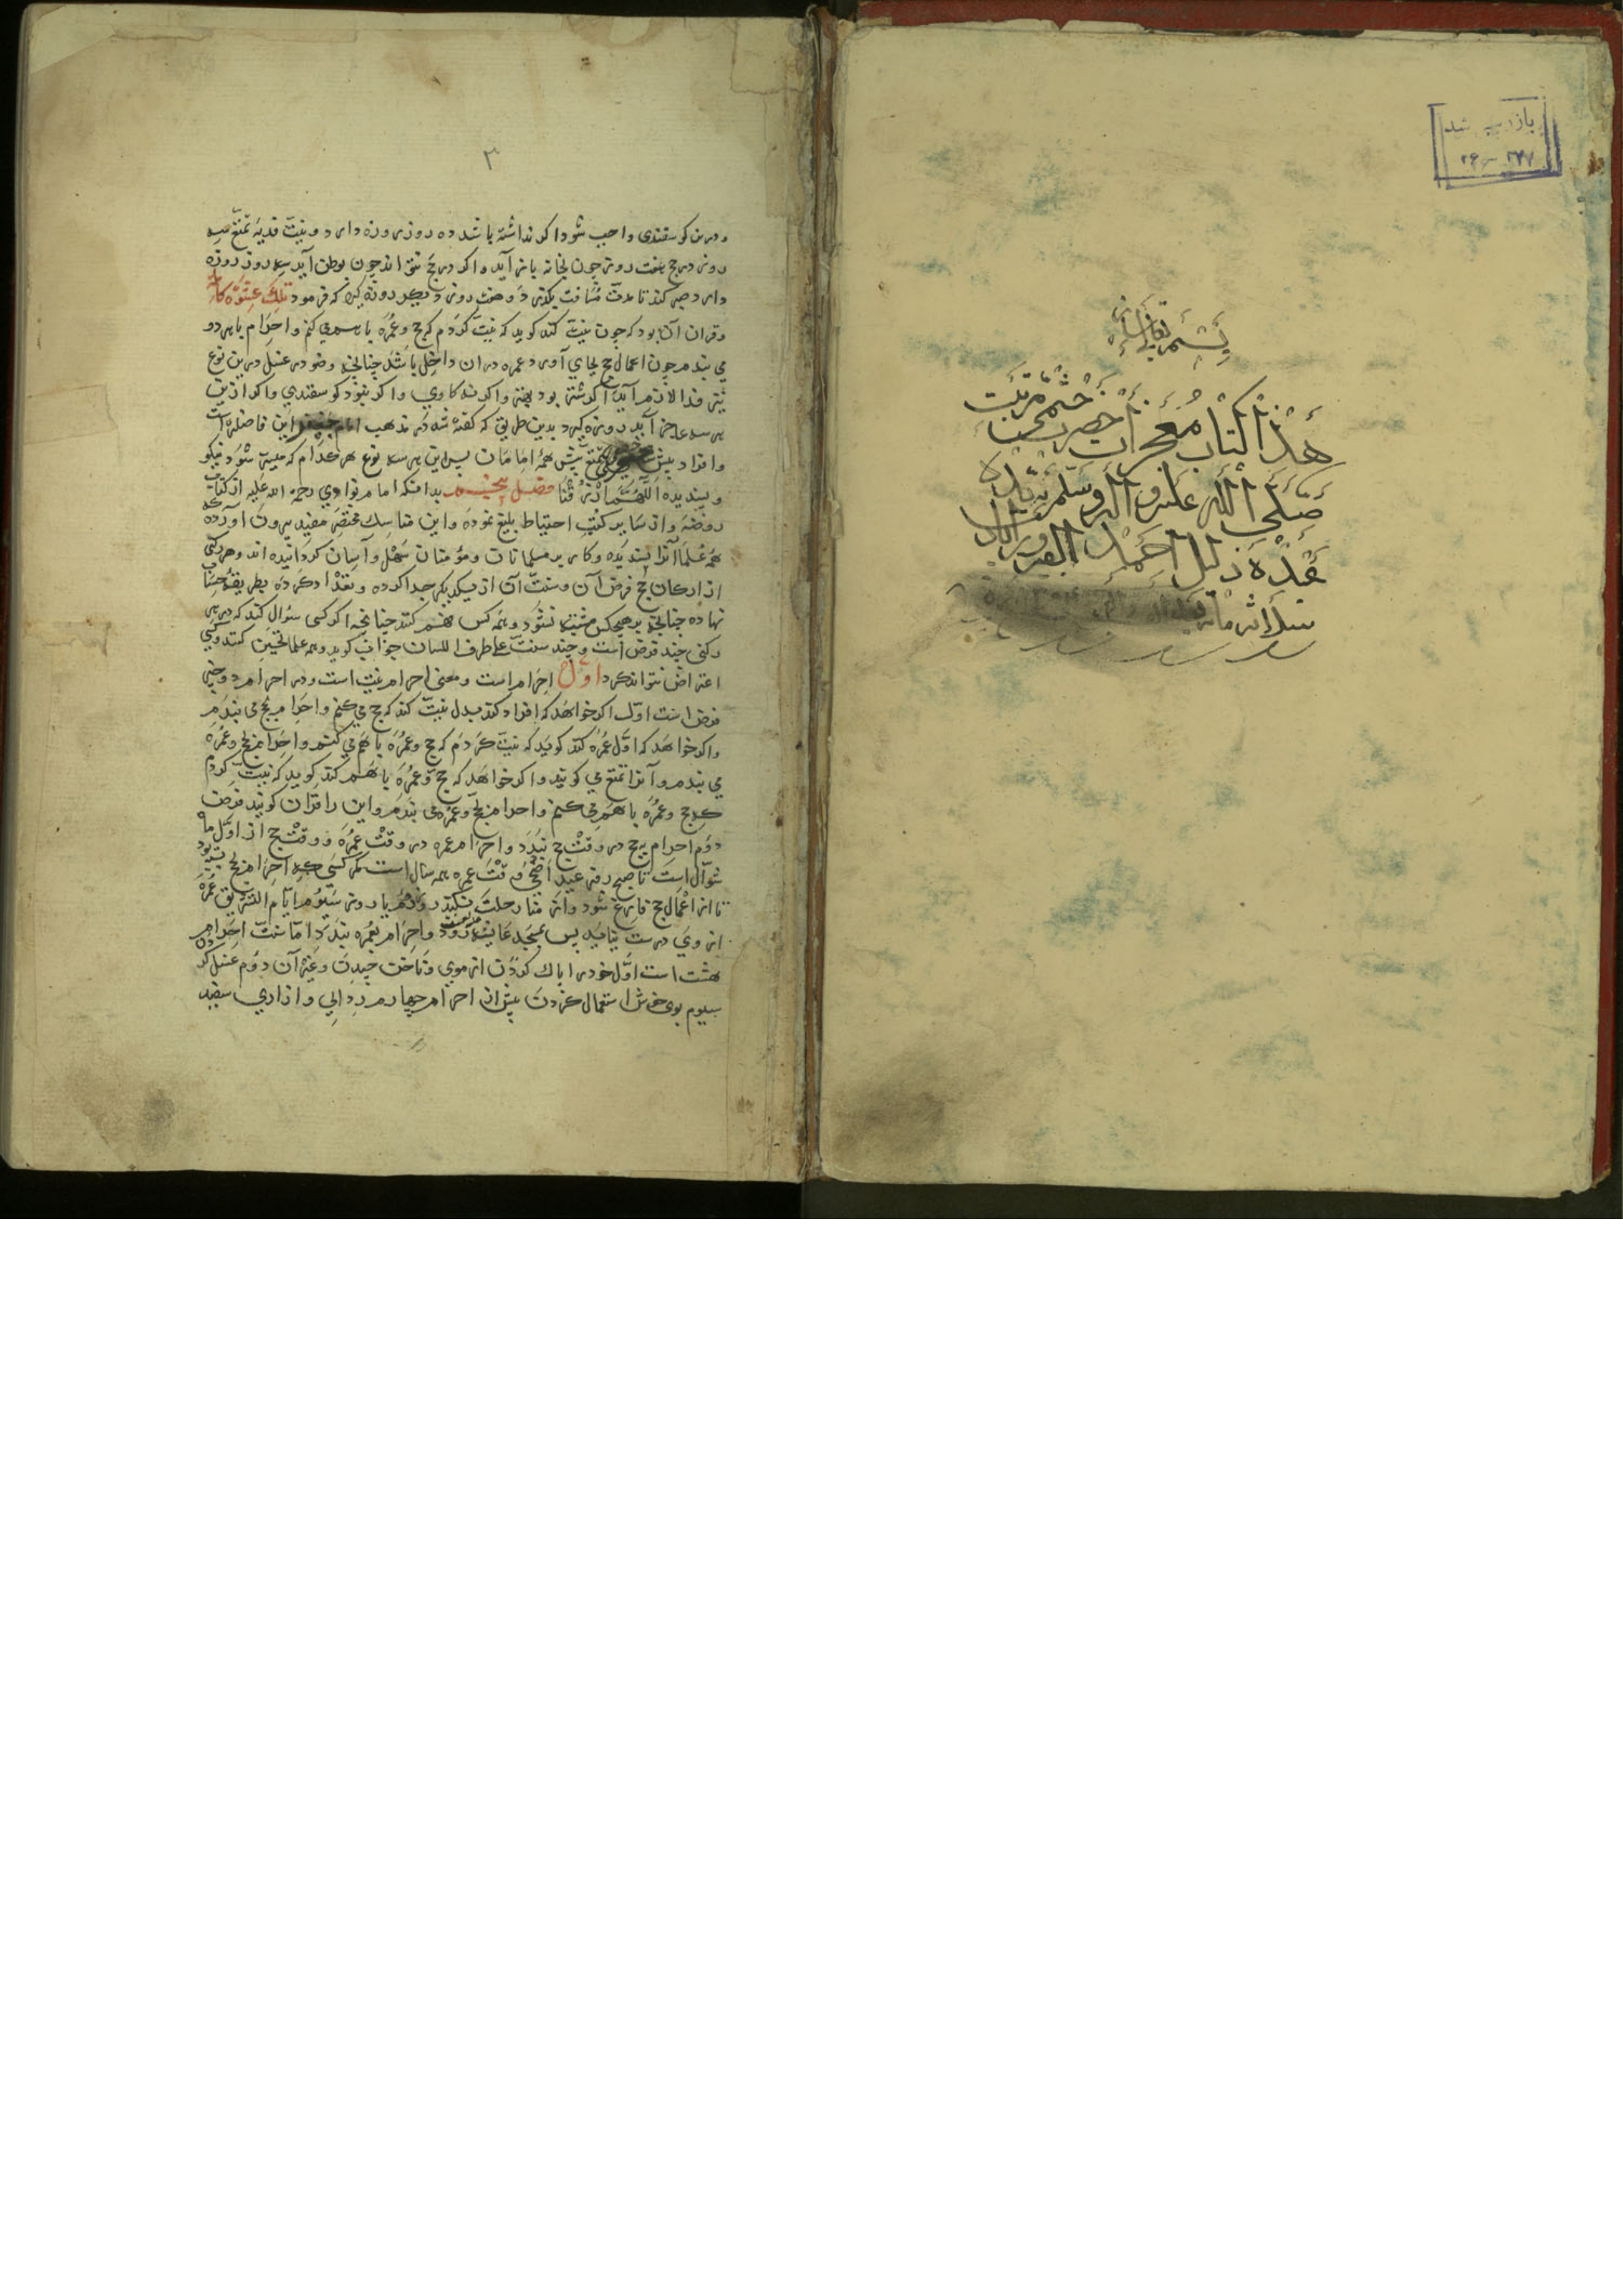 بازدید شد
۲۷۷ - ۲۶
هذا کتاب معجزات حضرت
صلی الله علیه و اله وسلم
۳
درین کوسفندی واجب شود اکر نداشته باشد ده روز روزه دارد و نیت فدیه تمتع سه
روز در حج هفت روز چون بخانه باز آید واکر در حج نتواند چون بوطن آید سه روز روزه
دارد وصبر کند تا مدت مسافت بکذرد وهفت روز دیکر روزه که فرمود تلک عشرة کاملة
وقران آن بود که چون نیت کند کوید که نیت کردم که حج وعمره با هم می کنم واحرام با هر دو
می بندم چون اعمال حج بجای آورد عمره دران داخل باشد چنانچه وضو در غسل درین نوع
نیز فدا لازم آید اکر شتر بود بهتر واکر نه کاوی واکر نبود کوسفندی واکر ازین
هر سه عاجز آید روزه کیرد بدین طریق که کفته شد در مذهب امام این فاضلتر است
وافراد پیش تمتع پیش همه امامان پس ازین هر سه نوع هر کدام که میسر شود نیکو
وپسندیده اللهم ارزقنا فصل پنجم بدانکه امام نواوی رحمة الله علیه از کتاب
روضه واز سایر کتب احتیاط بلیغ نموده واین مناسک مختصر مفید بیرون آورده که
همه علما آنرا پسندیده وکار بر مسلمانان ومؤمنان سهل وآسان کردانیده اند وهر رکنی
از ارکان حج فرض آن وسنت آن از یکدیکر جدا کرده وتعداد کرده بطریقه حسنا
نهاده چنانچه بر هیچکس مشتبه نشود وهمه کس فهم کنند چنانچه اکر کسی سؤال کند که در هر
رکنی چند فرض است وچند سنت علی طرف اللسان جواب کوید وهمه علما تحسین کنند وکسی
اعتراض نتواند کرد اول احرام است ومعنی احرام نیت است ودر احرام دو چیز
فرض است اول اکر خواهد که افراد کند بدل نیت کند که حج می کنم واحرام بحج می بندم
واکر خواهد که اول عمره کند کوید که نیت کردم که حج وعمره با هم می کنم واحرام بحج وعمره
می بندم وآنرا تمتع می کویند واکر خواهد که حج وعمره با هم کند کوید که نیت کردم
که حج وعمره با هم می کنم واحرام بحج وعمره می بندم واین را قران کویند فرض
دوم احرام بحج در وقت حج بندد واحرام عمره در وقت عمره ووقت حج از اول ماه
شوال است تا صبح روز عید اضحی ووقت عمره همه سال است مکر کسی که احرام بحج بسته بود
تا از اعمال حج فارغ شود واز منا رحلت نکند روز دوم یا روز سیوم ایام التشریق عمره
از وی درست نیاید پس بمسجد عایشه رود واحرام بعمره بندد اما سنت احرام
هشت است اول خود را پاک کردن از موی وناخن چیدن وغیر آن دوم غسل کردن
سیوم بوی خوش استعمال کردن پیش از احرام چهارم ردایی وازاری سفید